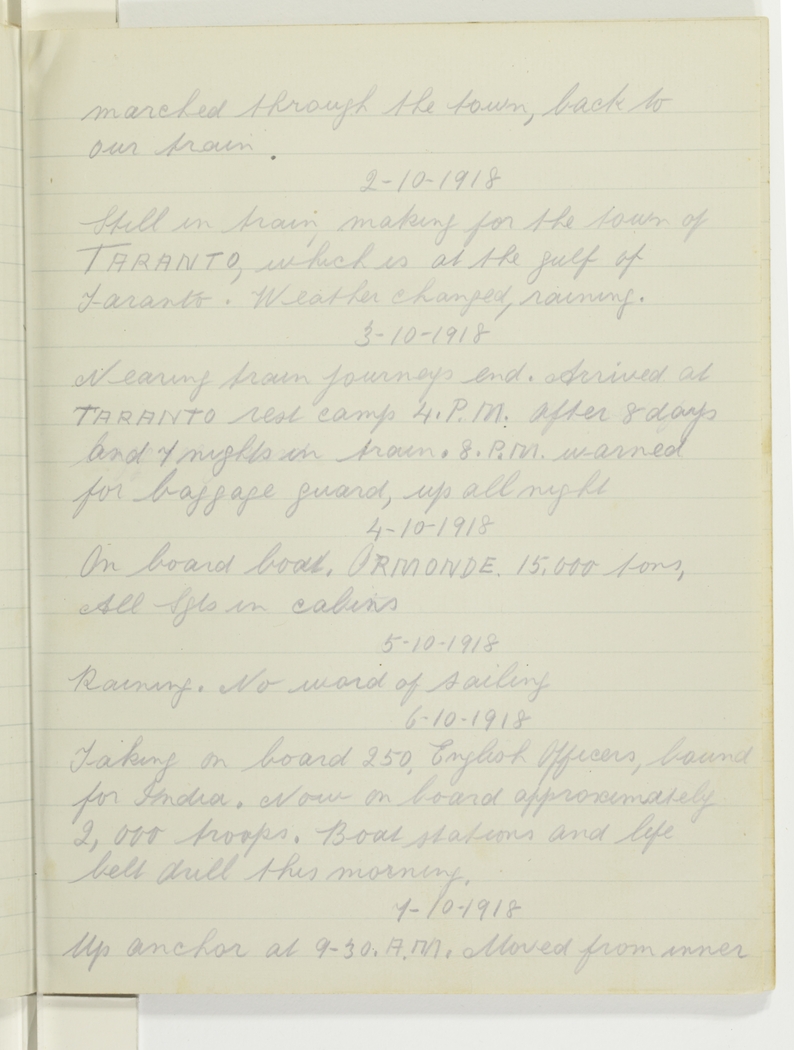 marched through the town, back to
our train.
2-10-1918
Still in train, making for the town of
TARANTO, which is at the gulf of
Taranto. Weather changed, raining.
3-10-1918
Nearing train journeys end. Arrived at
TARANTO rest camp 4.P.M. after 8 days
and 7 nights in train. 8.P.M. warned
for baggage guard, up all night
4-10-1918
On board boat. ORMONDE. 15.000 tons,
All Sgts in cabins
5-10-1918
Raining. No word of sailing
6-10-1918
Taking on board 250, English Officers, bound
for India. Now on board approximately
2,000 troops. Boat stations and life
belt drill this morning.
7-10-1918
Up anchor at 9-30.A.M. Moved from inner